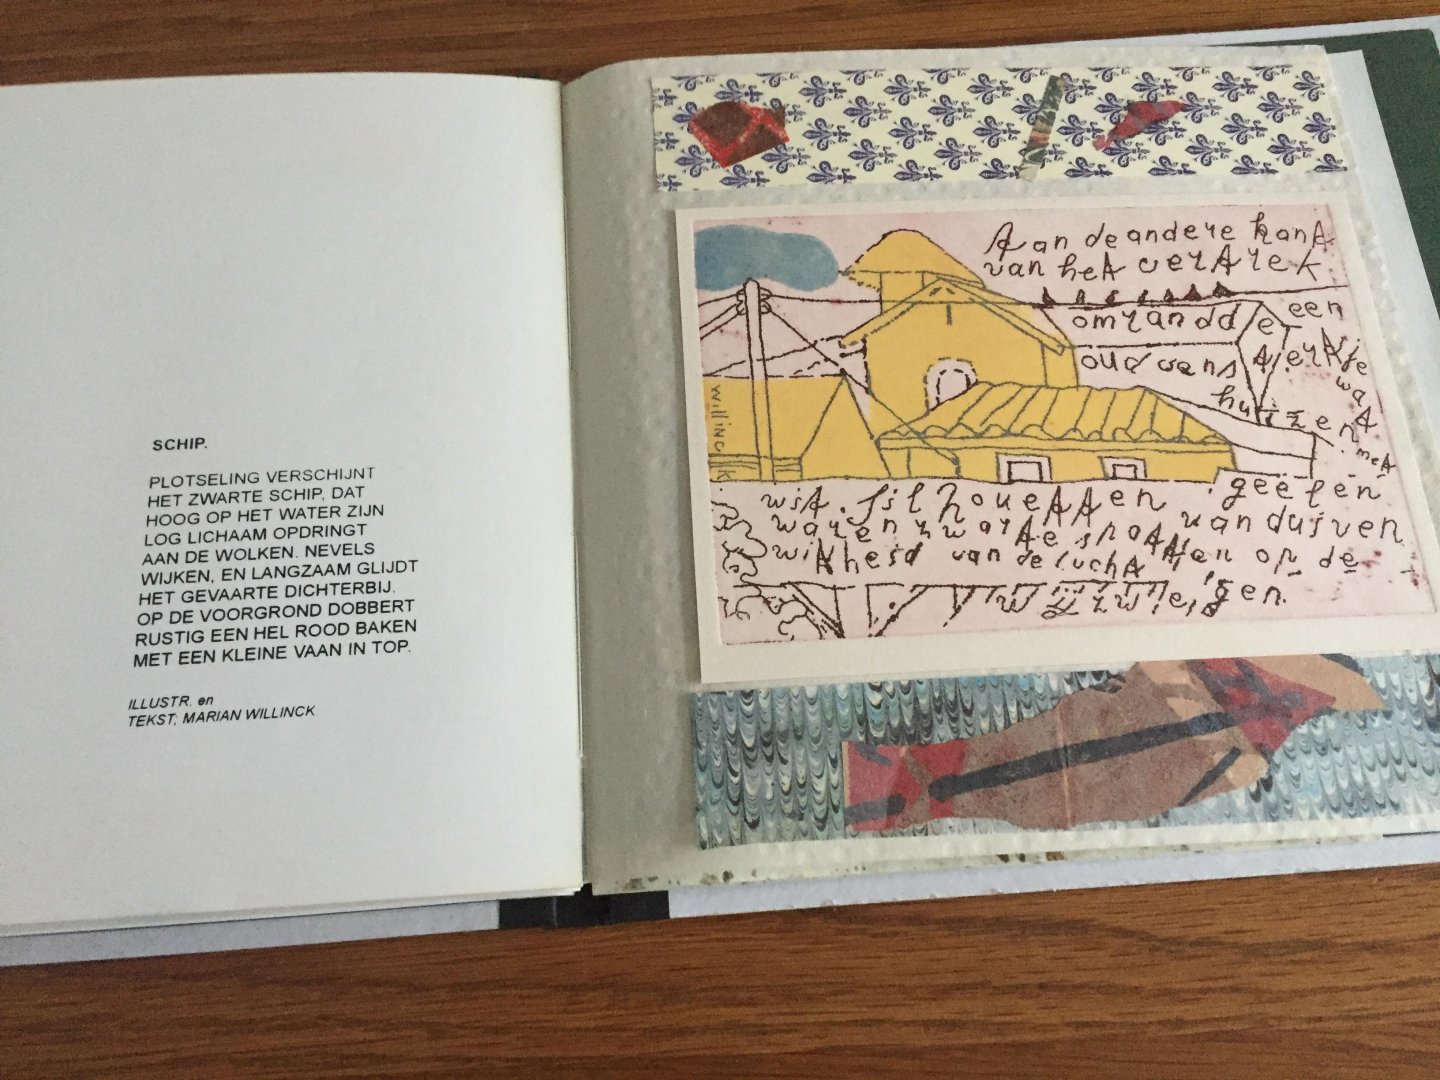 SCHIP.
PLOTSELING VERSCHIJNT
HET ZWARTE SCHIP, DAT
HOOG OP HET WATER ZIJN
LOG LICHAAM OPDRINGT
AAN DE WOLKEN. NEVELS
WIJKEN, EN LANGZAAM GLIJDT
HET GEVAARTE DICHTERBIJ.
OP DE VOORGROND DOBBERT
RUSTIG EEN HEL ROOD BAKEN
MET EEN KLEINE VAAN IN TOP.
ILLUSTR. en
TEKST, MARIAN WILLINCK
Aan de andere kant
van het vertrek
omrandde een
oudroans atertje
wat
huizen met
willinck
wit. silhouetten geëfen
waren zwarte spatten van duiven
witheid van de lucht op de
wijzwiegen.